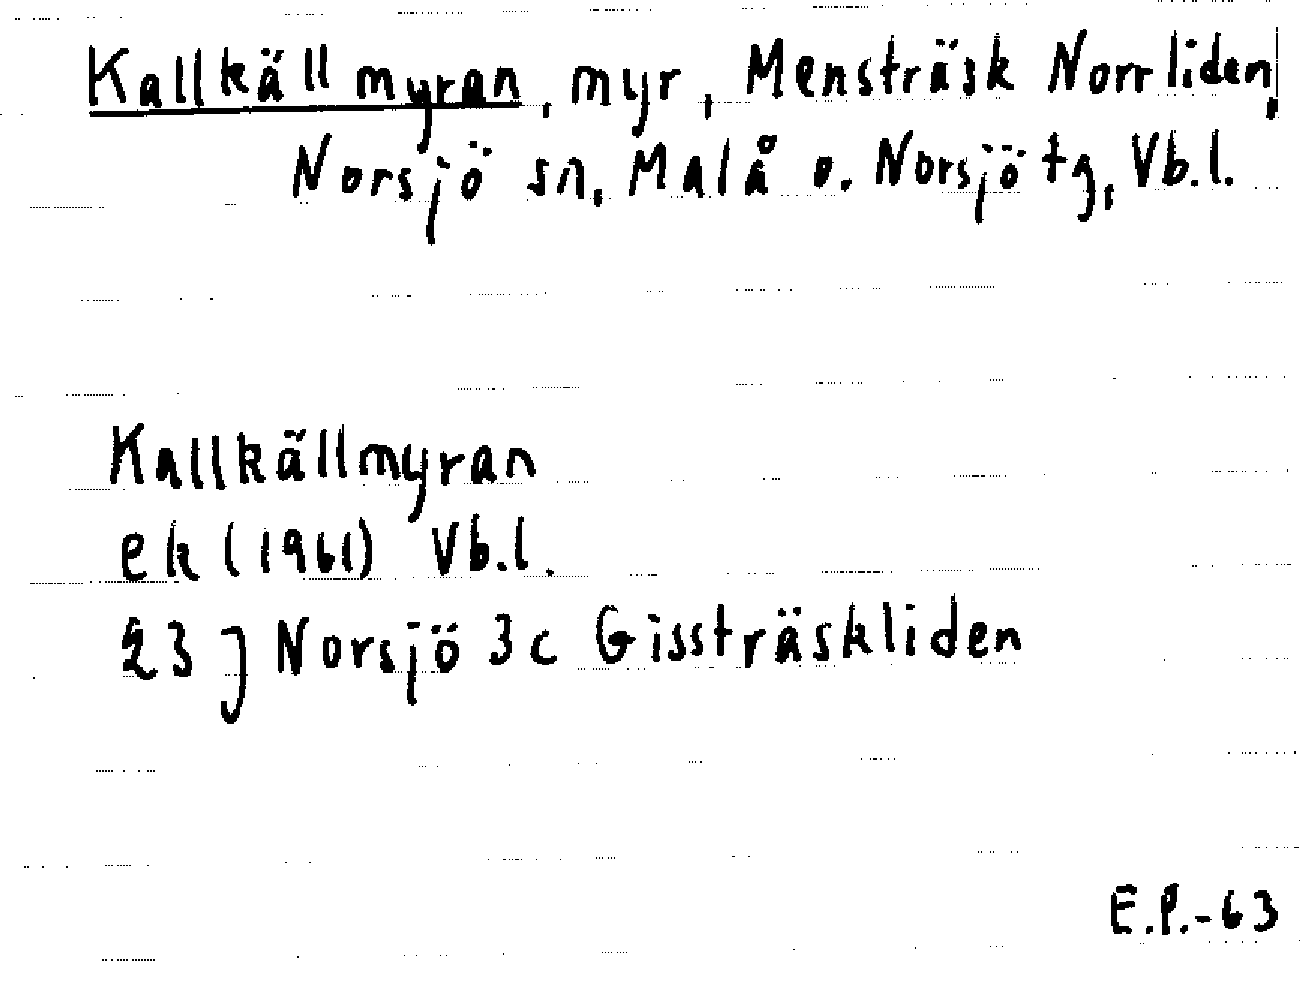 Kallkällmyran, myr, Mensträsk Norrliden,
Norsjö sn, Malå o. Norsjö tg, Vb.l.
Kallkällmyran
ek (1961) Vb.l.
23 J Norsjö 3c Gissträskliden
E.P.-63